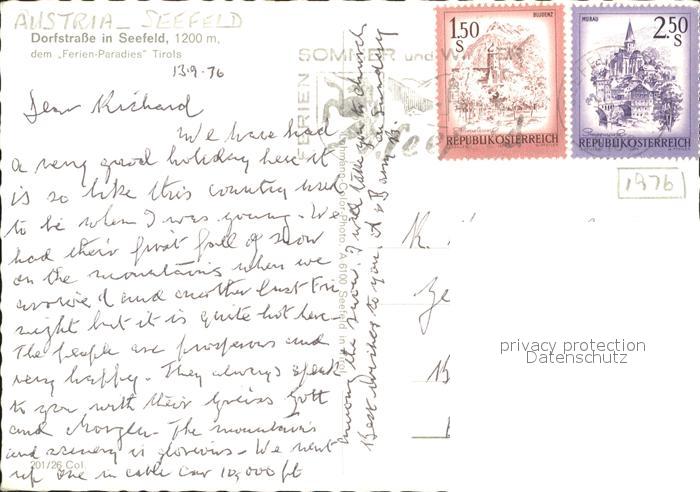 AUSTRIA - SEEFELD
Dorfstraße in Seefeld, 1200 m,
dem „Ferien-Paradies" Tirols
13.9.76
Dear Richard
We have had
a very good holiday here it
is so like this country used
to be when I was young. We
had their first fall of snow
on the mountains when we
arrived and another last Fri
night but it is quite hot here.
The people are prosperous and
very happy. They always speak
to you with their Greiss Gott
and Morgen. The mountains
and scenery is glorious. We went
up one in cable car 10,000 ft
201/26 Col
among the snow. I will take you to church
on Sunday
Best wishes to you.
Color-Photo A 6100 Seefeld in Tirol
FERIEN
SOMMER und
1.50
S
BLUDENZ
REPUBLIK ÖSTERREICH
MURAU
2.50
S
REPUBLIK ÖSTERREICH
1976
K.
privacy protection
Datenschutz